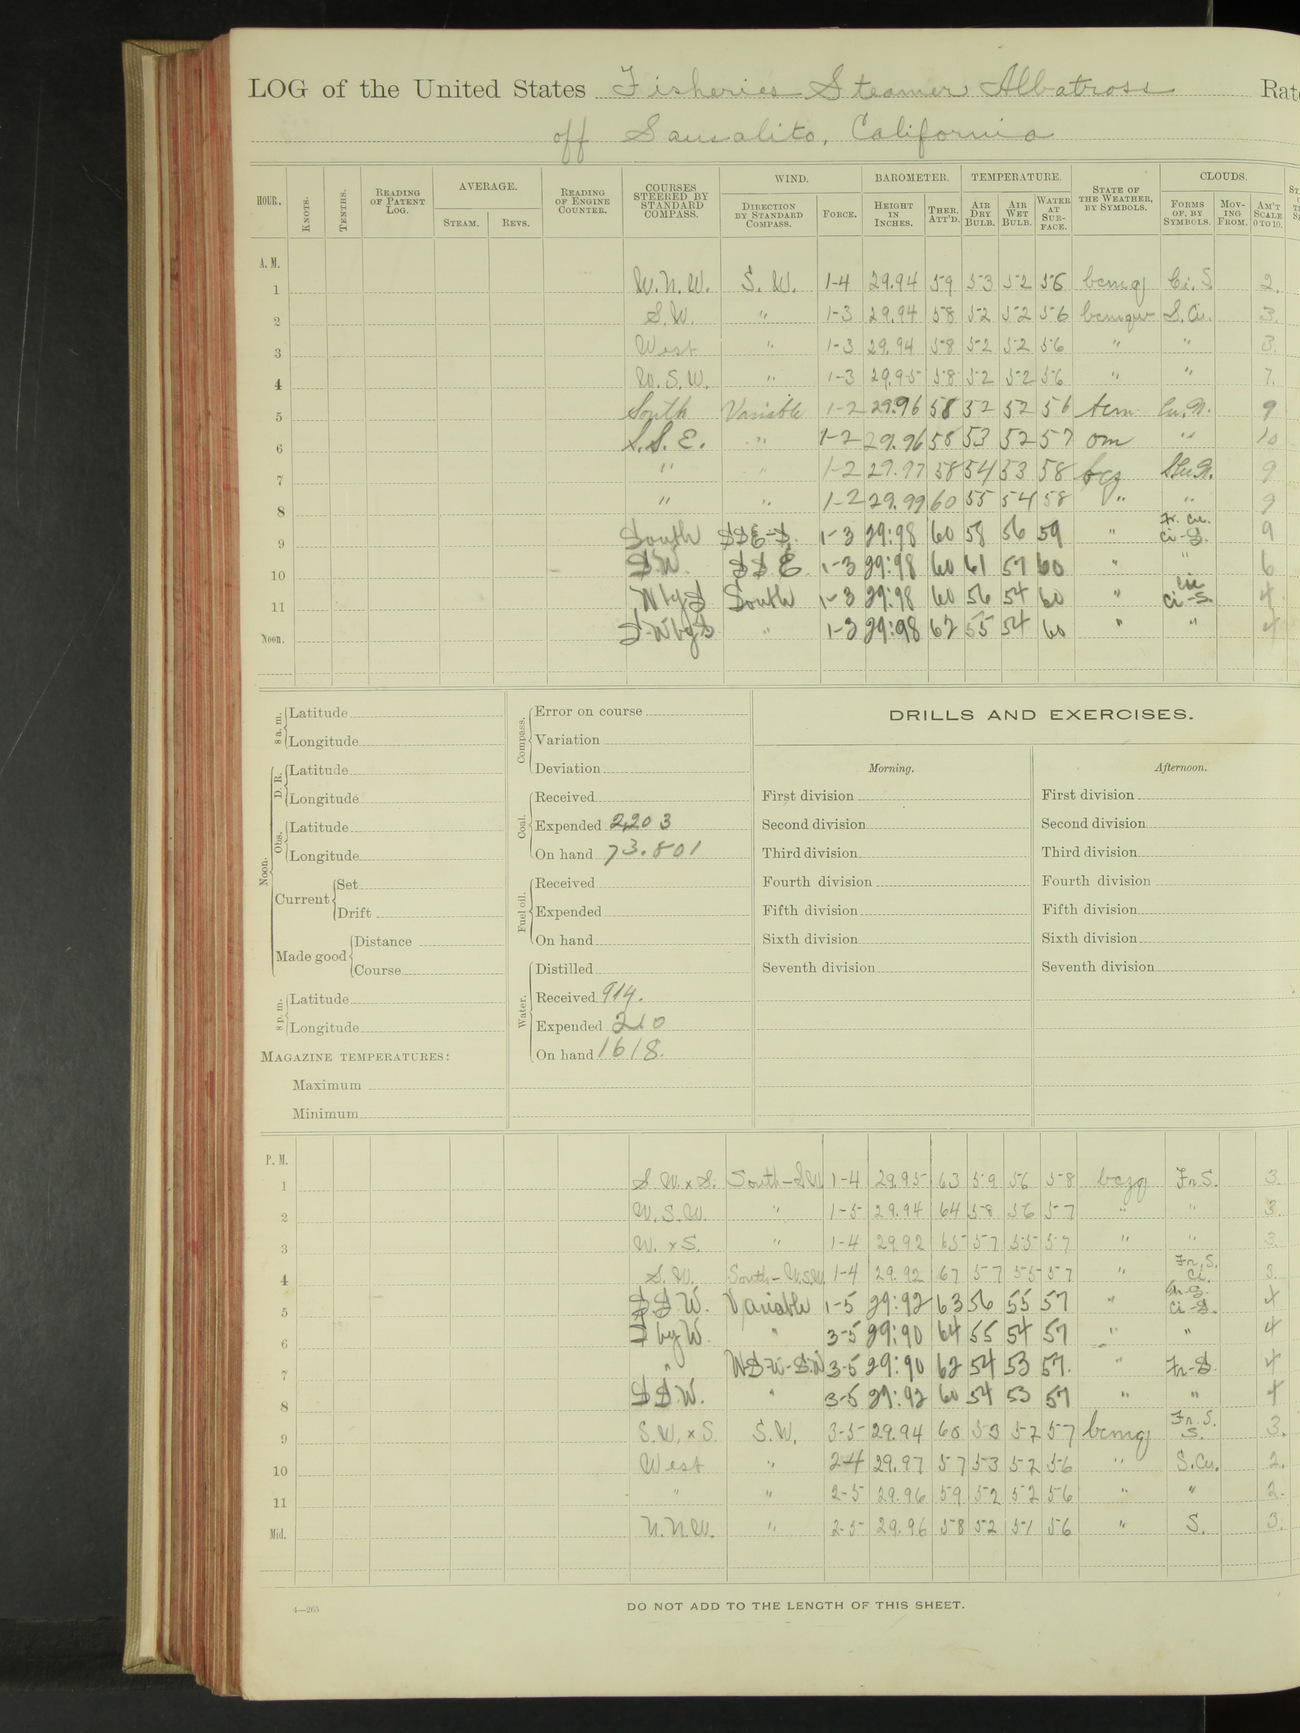 LOG of the United States Fisheries Steamer Albatross Rate
off Sausalito, California
HOUR. KNOTS. TENTHS. READING OF PATENT LOG. AVERAGE. STEAM. REVS. READING OF ENGINE COUNTER. COURSES STEERED BY STANDARD COMPASS. WIND. DIRECTION BY STANDARD COMPASS. FORCE. BAROMETER. HEIGHT IN INCHES. THER. ATT'D. TEMPERATURE. AIR DRY BULB. AIR WET BULB. WATER AT SUR-FACE. STATE OF THE WEATHER, BY SYMBOLS. CLOUDS. FORMS OF, BY SYMBOLS. MOV-ING FROM. AM'T SCALE 0 TO 10.
A. M.
1 W.N.W. S. W. 1-4 29.94 59 53 52 56 bcmq Ci. S 2.
2 S.W. " 1-3 29.94 58 52 52 56 bcmqw S. Cu. 3.
3 West " 1-3 29.94 58 52 52 56 " " 3.
4 W. S. W. " 1-3 29.95 58 52 52 56 " " 7.
5 South Variable 1-2 29.96 58 52 52 56 Cu. N. 9
6 S. S. E. " 1-2 29.96 58 53 52 57 om " 10
7 " " 1-2 29.97 58 54 53 58 bcz 9
8 " " 1-2 29.99 60 55 54 58 " " 9
9 South SSE-S. 1-3 29:98 60 58 56 59 " Fr. cu. ci-S. 9
10 SW. SSE 1-3 29:98 60 61 57 60 " " 6
11 W by S South 1-3 29:98 60 56 54 60 " cu ci-S. 4
Noon. S-W by S " 1-3 29:98 62 55 54 60 " " 4
8 a. m. Latitude
Longitude
Noon. D. R. Latitude
Longitude
Obs. Latitude
Longitude
Current Set
Drift
Made good Distance
Course
8 p. m. Latitude
Longitude
MAGAZINE TEMPERATURES:
Maximum
Minimum
Compass. Error on course
Variation
Deviation
Coal. Received
Expended 2,203
On hand 73.801
Fuel oil. Received
Expended
On hand
Water. Distilled
Received 914.
Expended 210
On hand 1618.
DRILLS AND EXERCISES.
Morning.
First division
Second division
Third division
Fourth division
Fifth division
Sixth division
Seventh division
Afternoon.
First division
Second division
Third division
Fourth division
Fifth division
Sixth division
Seventh division
P. M.
1 S. W. x S. South-SW 1-4 29.95 63 59 56 58 bczq Fr. S. 3.
2 W. S. W. " 1-5 29.94 64 58 56 57 " " 3.
3 W. x S. " 1-4 29.92 65 57 55 57 " " 3.
4 S. W. South-W.S.W. 1-4 29.92 67 57 55 57 " Fr. S. Ci. 3.
5 SSW. Variable 1-5 29:92 63 56 55 57 " Fr-S. ci-S. 4
6 S by W. " 3-5 29:90 64 55 54 57 " " 4
7 " WSW-SW 3-5 29:90 62 54 53 57. " Fr-S. 4
8 SSW. " 3-5 29:92 60 54 53 57 " " 4
9 S.W. x S. S.W. 3-5 29.94 60 53 52 57 bcmq Fr. S. S. 3.
10 West " 2-4 29.97 57 53 52 56 " S.Cu. 2.
11 " " 2-5 29.96 59 52 52 56 " " 2.
Mid. N.N.W. " 2-5 29.96 58 52 51 56 " S. 3.
4—265
DO NOT ADD TO THE LENGTH OF THIS SHEET.